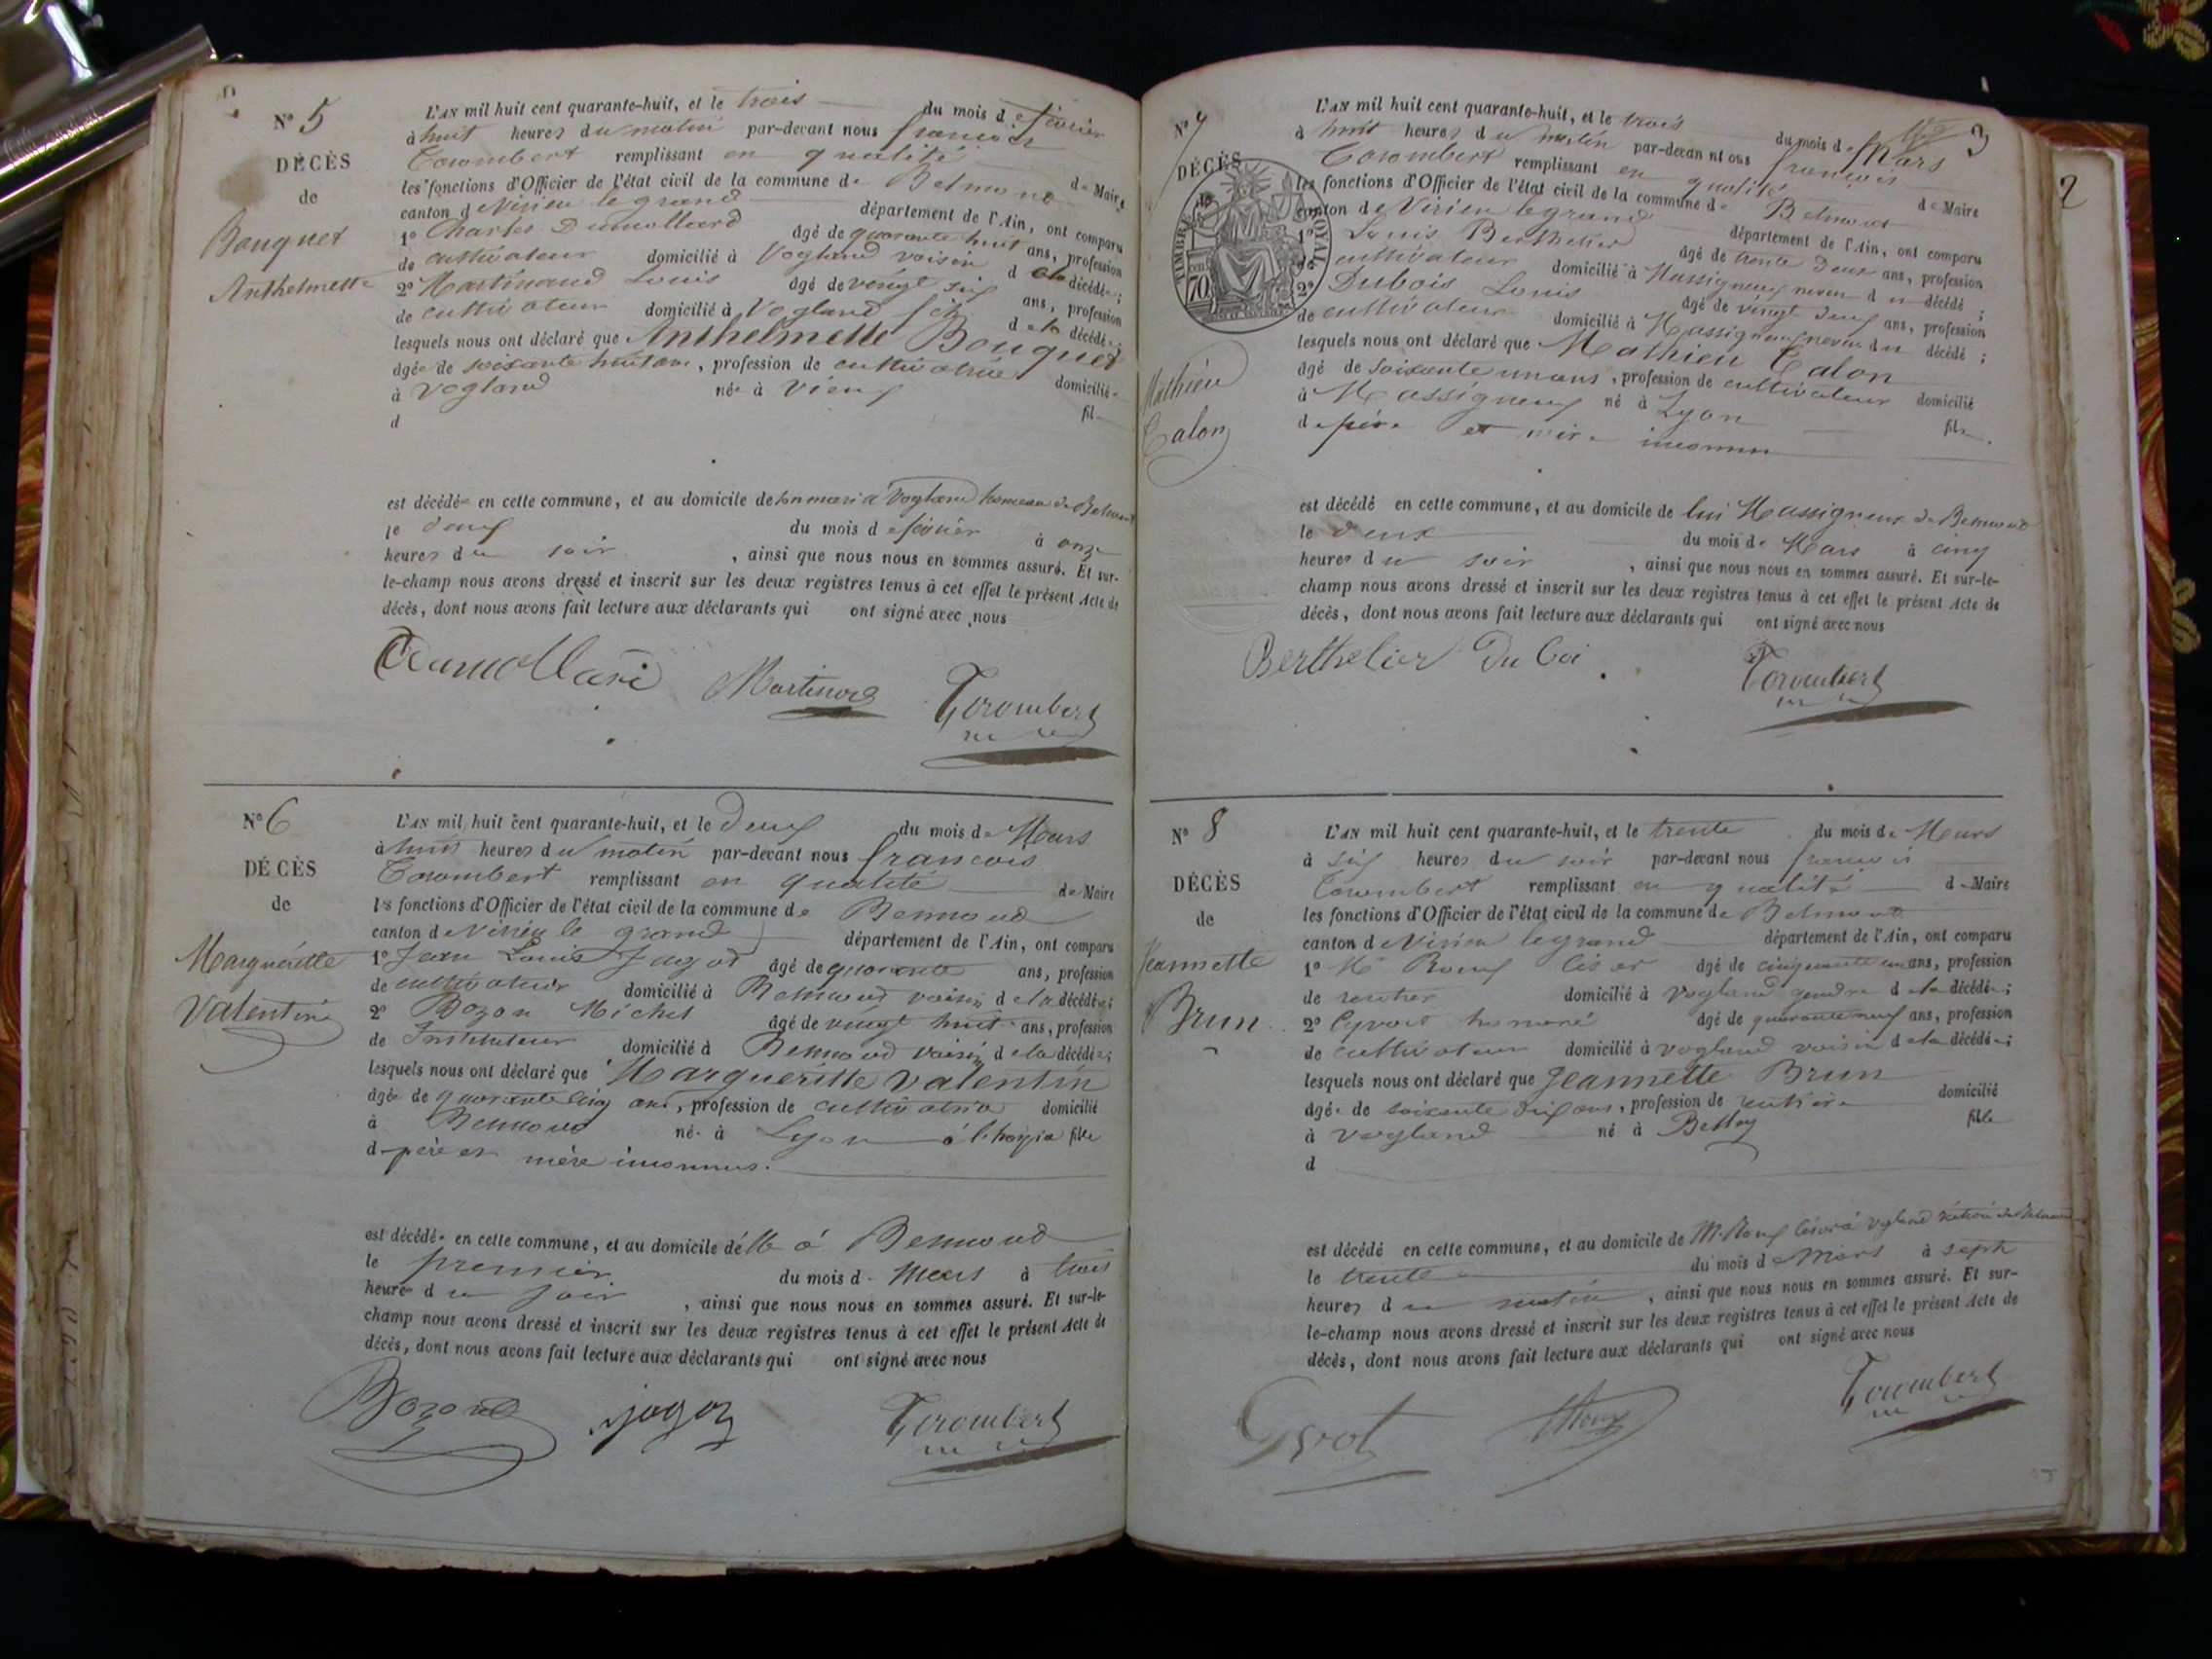 2
N° 5
DÉCÈS
de
Bouquet
Anthelmette
L'AN mil huit cent quarante-huit, et le trois du mois de février
à huit heures du matin par-devant nous françois
Corombert remplissant en qualité de Maire
les fonctions d'Officier de l'état civil de la commune de Belmond
canton de Virieu le grand département de l'Ain, ont comparu
1° Charles Dumollard âgé de quarante huit ans, profession
de cultivateur domicilié à Vogland voisin de la décédée;
2° Martinand Louis âgé de vingt six ans, profession
de cultivateur domicilié à Vogland fils de la décédée;
lesquels nous ont déclaré que Anthelmette Bouquet
âgée de soixante huit ans, profession de cultivatrice domiciliée
à Vogland née à Vieux fil
d
est décédée en cette commune, et au domicile de son mari à Vogland hameau de Belmond
le deux du mois de février à onze
heures du soir, ainsi que nous nous en sommes assuré. Et sur-
le-champ nous avons dressé et inscrit sur les deux registres tenus à cet effet le présent Acte de
décès, dont nous avons fait lecture aux déclarants qui ont signé avec nous
Martinand Corombert
N° 6
DÉCÈS
de
Margueritte
Valentin
L'AN mil huit cent quarante-huit, et le deux du mois de Mars
à huit heures du matin par-devant nous francois
Corombert remplissant en qualité de Maire
les fonctions d'Officier de l'état civil de la commune de Bemond
canton de Virieu le grand département de l'Ain, ont comparu
1° Jean Louis Jugod âgé de quarante ans, profession
de cultivateur domicilié à Bemond voisin de la décédée;
2° Bozon Michel âgé de vingt huit ans, profession
de Instituteur domicilié à Bemond voisin de la décédée;
lesquels nous ont déclaré que Margueritte Valentin
âgée de quarante cinq ans, profession de cultivatrice domicilié
à Bemond née à Lyon à l'hospice fille
de père et mère inconnus.
est décédée en cette commune, et au domicile d'elle à Bemond
le premier du mois de Mars à trois
heures du soir, ainsi que nous nous en sommes assuré. Et sur-le-
champ nous avons dressé et inscrit sur les deux registres tenus à cet effet le présent Acte de
décès, dont nous avons fait lecture aux déclarants qui ont signé avec nous
Corombert
3
2
N° 7
DÉCÈS
de
TIMBRE ROYAL
70
Mathieu
Calon
L'AN mil huit cent quarante-huit, et le trois du mois de Mars
à huit heures du matin par-devan nt ous françois
Corombert remplissant en qualité de Maire
les fonctions d'Officier de l'état civil de la commune de Belmont
canton de Virieu le grand département de l'Ain, ont comparu
1° Louis Berthelier âgé de trente deux ans, profession
de cultivateur domicilié à Massigneux neveu du décédé;
2° Dubois Louis âgé de vingt deux ans, profession
de cultivateur domicilié à Massigneux neveu du décédé;
lesquels nous ont déclaré que Mathieu Calon
âgé de soixante un ans, profession de cultivateur domicilié
à Massigneux né à Lyon fils
de père et mère inconnus
est décédé en cette commune, et au domicile de lui Massigneux de Bemond
le deux du mois de Mars à cinq
heures du soir, ainsi que nous nous en sommes assuré. Et sur-le-
champ nous avons dressé et inscrit sur les deux registres tenus à cet effet le présent Acte de
décès, dont nous avons fait lecture aux déclarants qui ont signé avec nous
Berthelier Corombert
N° 8
DÉCÈS
de
Jeannette
Brun
L'AN mil huit cent quarante-huit, et le trente du mois de Mars
à six heures du soir par-devant nous francois
Corombert remplissant en qualité de Maire
les fonctions d'Officier de l'état civil de la commune de Belmond
canton de Virieu le grand département de l'Ain, ont comparu
1° Mr Roux César âgé de cinquante un ans, profession
de rentier domicilié à Vogland gendre de la décédée;
2° Cyvoct honoré âgé de quarante neuf ans, profession
de cultivateur domicilié à Vogland voisin de la décédée;
lesquels nous ont déclaré que Jeannette Brun
âgée de soixante dix ans, profession de rentière domicilié
à Vogland né à Belley fille
d
est décédé en cette commune, et au domicile de Mr Roux César à Vogland
le trente du mois de Mars à sept
heures du matin, ainsi que nous nous en sommes assuré. Et sur-
le-champ nous avons dressé et inscrit sur les deux registres tenus à cet effet le présent Acte de
décès, dont nous avons fait lecture aux déclarants qui ont signé avec nous
Corombert